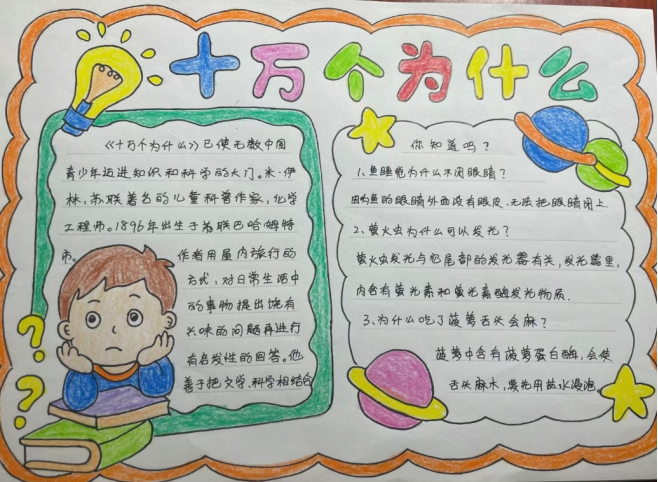 十万个为什么
《十万个为什么》已使无数中国
青少年迈进知识和科学的大门。米·伊
林,苏联著名的儿童科普作家,化学
工程师。1896年出生于苏联巴哈姆特
市。 作者用屋内旅行的
方式,对日常生活中
的事物提出饶有
兴味的问题再进行
有启发性的回答。他
善于把文学、科学相结合
你知道吗?
1、鱼睡觉为什么不闭眼睛?
因为鱼的眼睛外面没有眼皮、无法把眼睛闭上.
2、萤火虫为什么可以发光?
萤火虫发光与它尾部的发光器有关,发光器里,
内含有萤光素和萤光素酶发光物质.
3、为什么吃了菠萝舌头会麻?
菠萝中含有菠萝蛋白酶,会使
舌头麻木,要先用盐水浸泡。
? ?